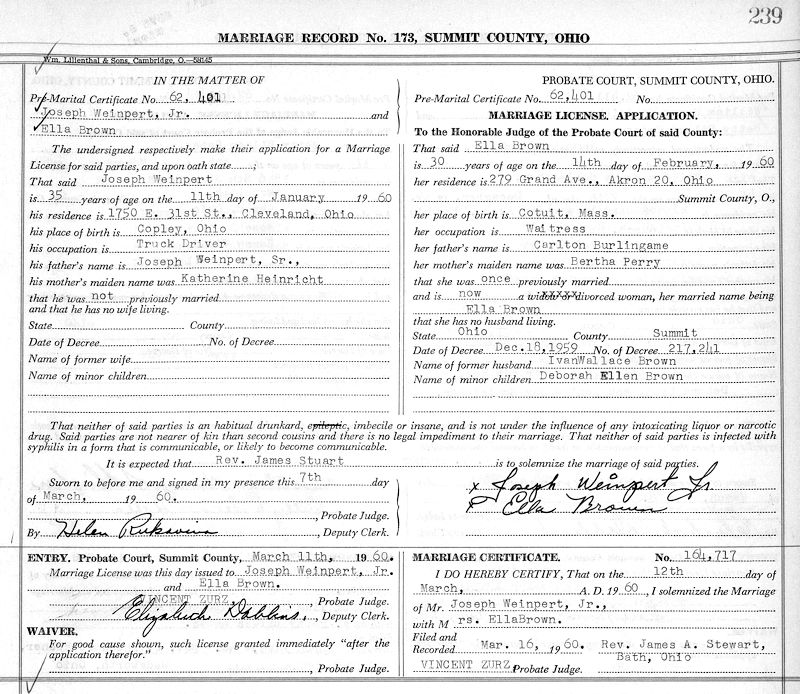 239
MARRIAGE RECORD No. 173, SUMMIT COUNTY, OHIO
Wm. Lilienthal & Sons, Cambridge, O.—58145
IN THE MATTER OF
Pre-Marital Certificate No. 62,401
Joseph Weinpert, Jr. and
Ella Brown
The undersigned respectively make their application for a Marriage
License for said parties, and upon oath state
That said Joseph Weinpert
is 35 years of age on the 11th day of January 1960
his residence is 1750 E. 31st St., Cleveland, Ohio
his place of birth is Copley, Ohio
his occupation is Truck Driver
his father's name is Joseph Weinpert, Sr.,
his mother's maiden name was Katherine Heinricht
that he was not previously married
and that he has no wife living.
State County
Date of Decree No. of Decree
Name of former wife
Name of minor children
PROBATE COURT, SUMMIT COUNTY, OHIO.
Pre-Marital Certificate No. 62,401 No.
MARRIAGE LICENSE. APPLICATION.
To the Honorable Judge of the Probate Court of said County:
That said Ella Brown
is 30 years of age on the 14th day of February, 1960
her residence is 279 Grand Ave., Akron 20, Ohio
Summit County, O.,
her place of birth is Cotuit, Mass.
her occupation is Waitress
her father's name is Carlton Burlingame
her mother's maiden name was Bertha Perry
that she was once previously married
and is now a widow or divorced woman, her married name being
Ella Brown
that she has no husband living.
State Ohio County Summit
Date of Decree Dec.18,1959 No. of Decree 217,241
Name of former husband IvanWallace Brown
Name of minor children Deborah Ellen Brown
That neither of said parties is an habitual drunkard, epileptic, imbecile or insane, and is not under the influence of any intoxicating liquor or narcotic
drug. Said parties are not nearer of kin than second cousins and there is no legal impediment to their marriage. That neither of said parties is infected with
syphilis in a form that is communicable, or likely to become communicable.
It is expected that Rev. James Stuart is to solemnize the marriage of said parties.
Sworn to before me and signed in my presence this 7th day
of March, 1960.
, Probate Judge.
By Helen Rukavina, Deputy Clerk.
x Joseph Weinpert Jr.
x Ella Brown
ENTRY. Probate Court, Summit County, March 11th, 1960.
Marriage License was this day issued to Joseph Weinpert, Jr.
and Ella Brown.
VINCENT ZURZ, Probate Judge.
Elizabeth Dobbins, Deputy Clerk.
WAIVER.
For good cause shown, such license granted immediately "after the
application therefor."
, Probate Judge.
MARRIAGE CERTIFICATE. No. 164,717
I DO HEREBY CERTIFY, That on the 12th day of
March, A. D. 1960, I solemnized the Marriage
of Mr. Joseph Weinpert, Jr.,
with M rs. EllaBrown.
Filed and
Recorded Mar. 16, 1960. Rev. James A. Stewart,
Bath, Ohio
VINCENT ZURZ, Probate Judge.